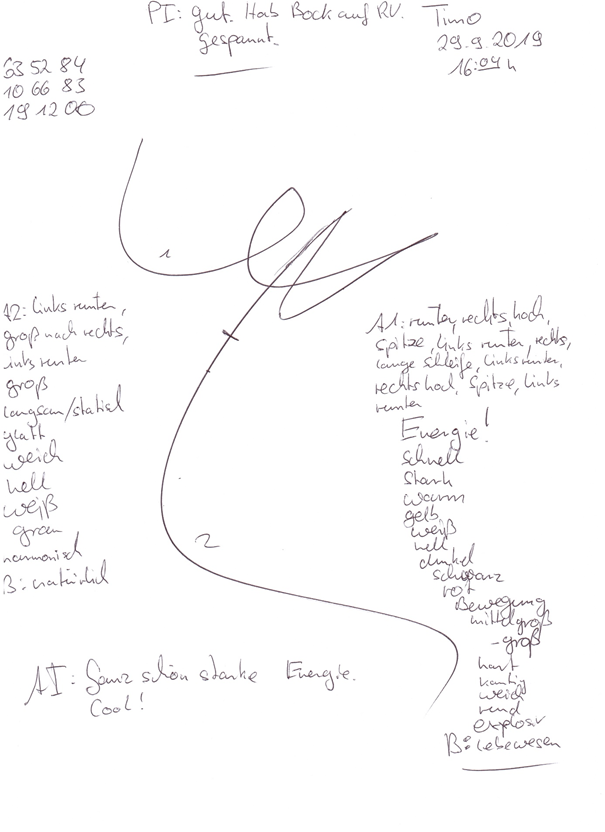 PI: gut. Hab Bock auf RV.
gespannt.
Timo
29.9.2019
16:04 h
63 52 84
10 66 83
19 12 00
1
A1: runter, rechts, hoch,
Spitze, links runter, rechts,
lange Schleife, links runter,
rechts hoch, Spitze, links
runter
Energie!
schnell
stark
warm
gelb
weiß
hell
dunkel
schwarz
rot
Bewegung
mittelgroß
-groß
hart
kantig
weich
rund
explosiv
B: Lebewesen
2
A2: links runter,
groß nach rechts,
links runter
groß
langsam/statisch
glatt
weich
hell
weiß
grau
harmonisch
B: natürlich
AI: Ganz schön starke Energie.
Cool!